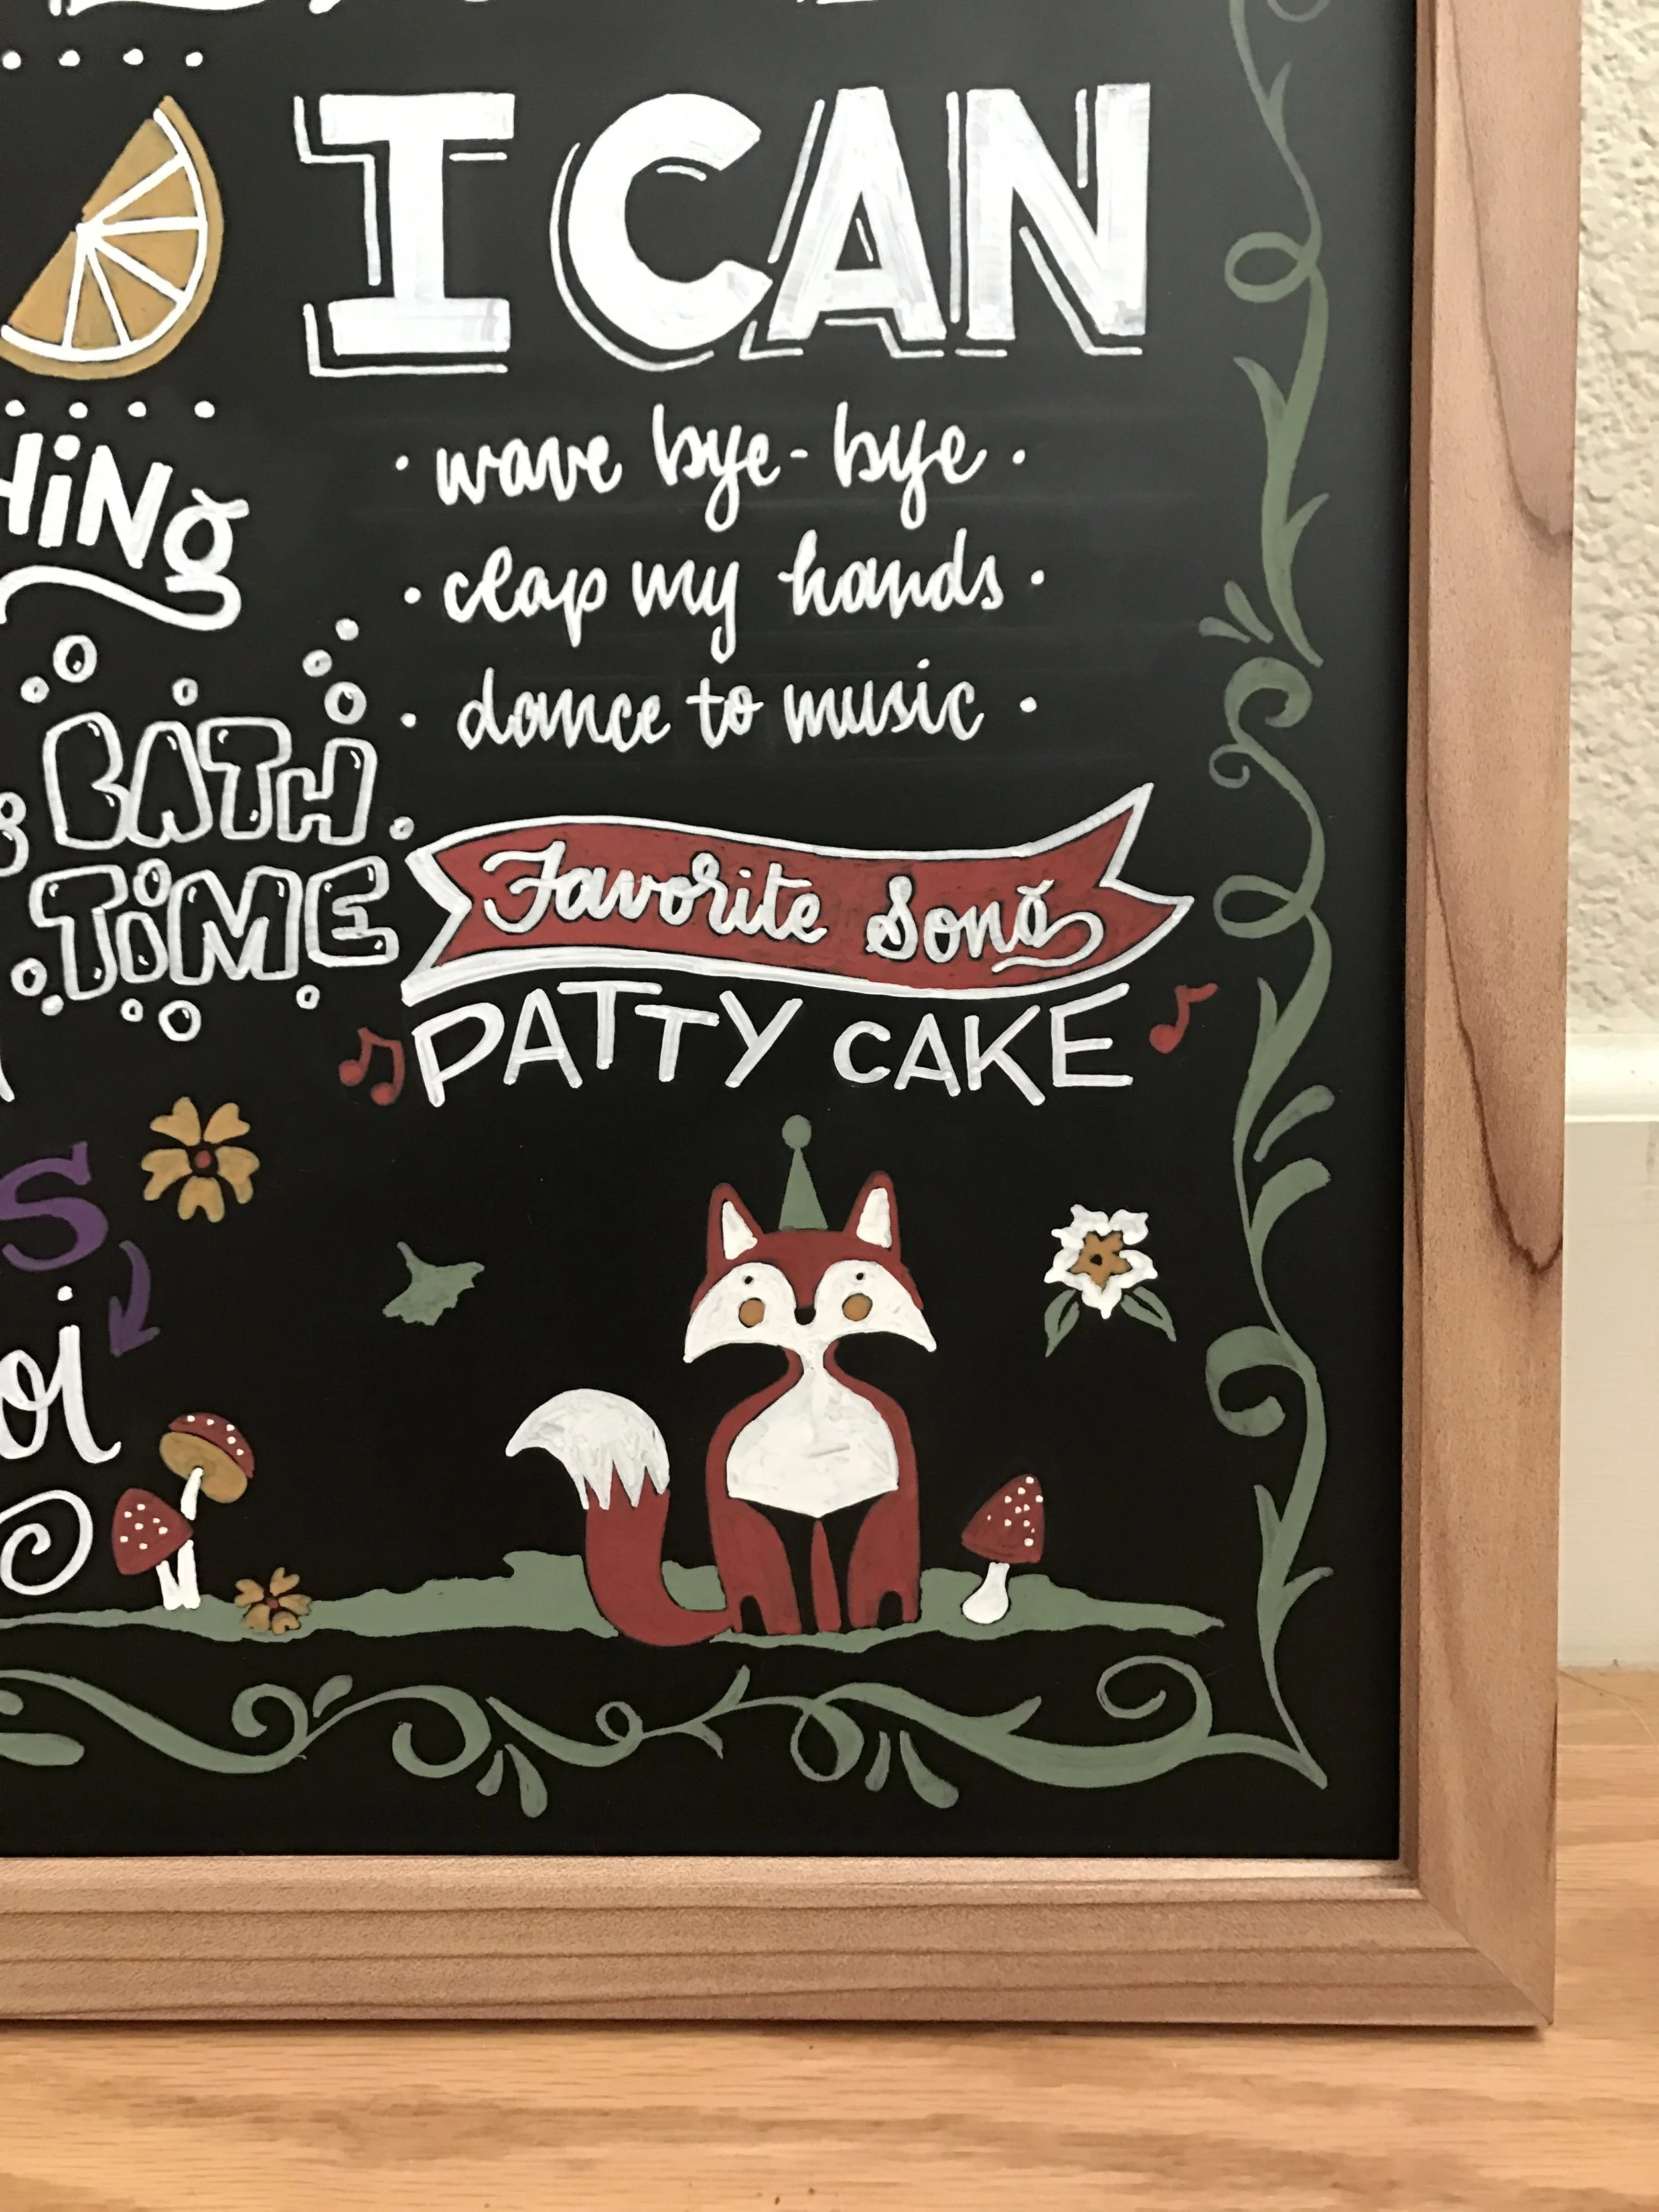 I CAN
· wave bye-bye ·
· clap my hands ·
· dance to music ·
BATH
TIME
Favorite Song
PATTY CAKE